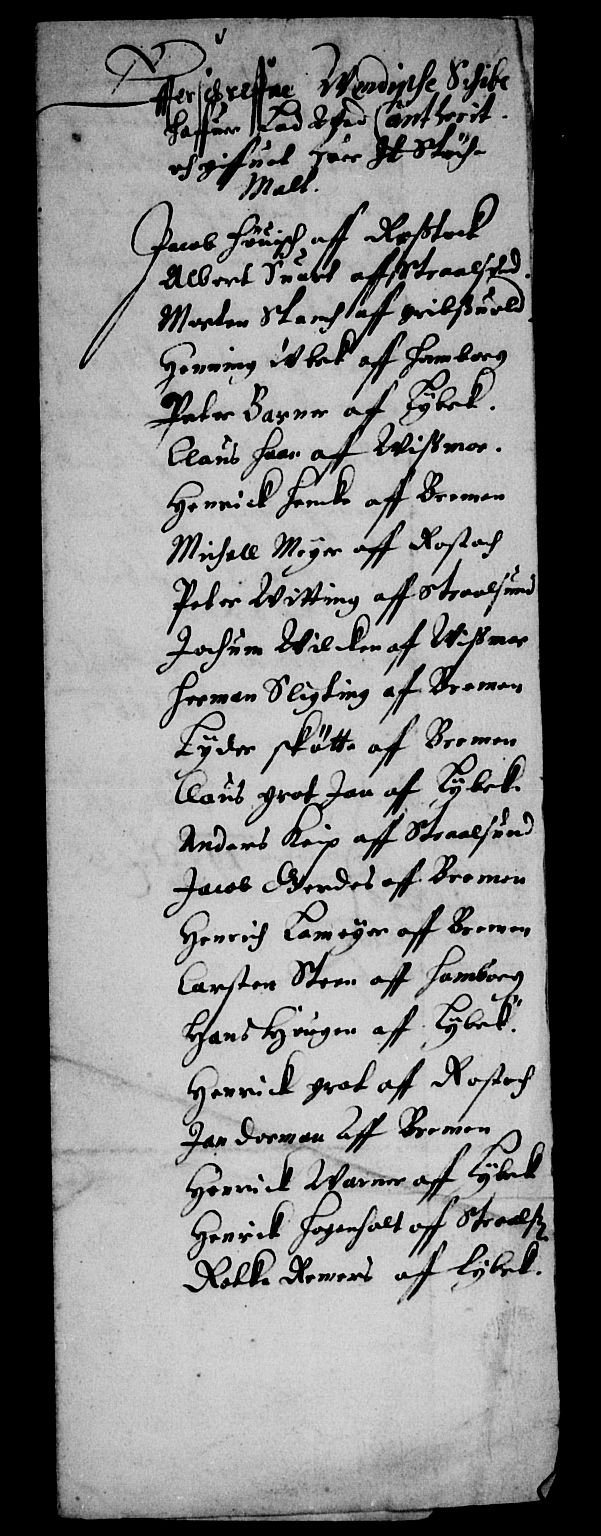 Effter schreffne Wendische Schibe
haffuer Lad Vhd Santterit
och giffuet huer It Stöch
Malt.
Jacob Höuisch aff Roßtock
Albert Suart aff Straalsund
Morten Starch aff gribßuold
Henning Wbek aff Hamborg
Peter Barner aff Lybek.
Claus Haan aff Wißmar.
Henrick Hencke aff Bremen
Michell Meyer aff Rostoch
Peter Witting aff Straalsund
Jochum Wilcken aff Wißmar
Herman Sligting aff Bremen
Lyder skötte aff Bremen
Claus grot Jan aff Lybek.
Anders Keip aff Straalsund
Jacob Gerdes aff Bremen
Henrich Lameyer aff Bremen
Carsten Steen aff Hamborg
Hans Hougen aff Lybek.
Henrick grot aff Rostoch
Jan Dorman Aff Bremen
Henrick Warner aff Lybek
Henrick Hogenholt aff Straals
Rolke Remers aff Lybek.